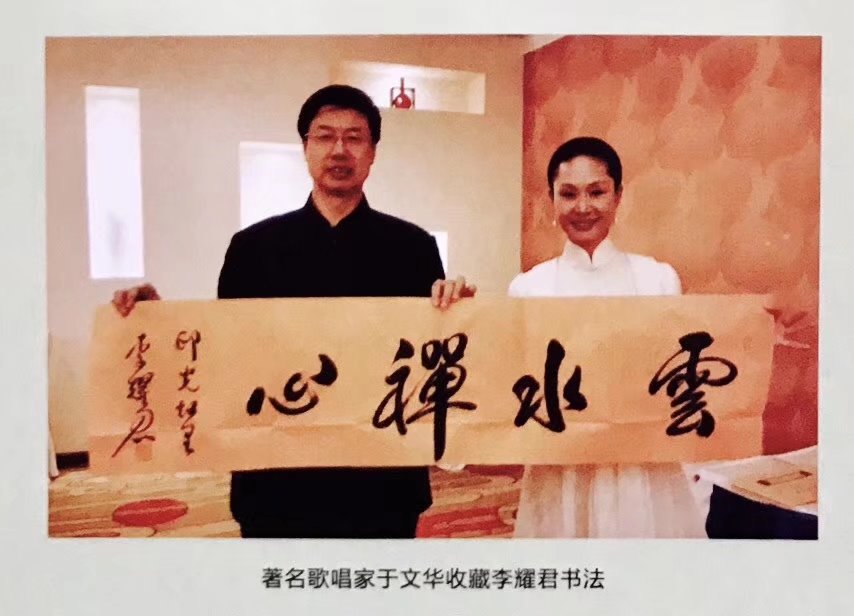 雲水禪心
李耀君
著名歌唱家于文华收藏李耀君书法